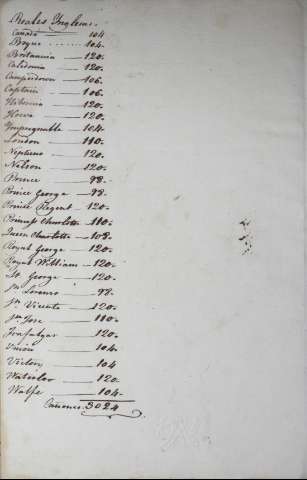 Reales Yngleses.
Canadá 104
Boyne 104.
Britannia 120.
Caledonia 120.
Camperdown 106.
Captain 106.
Hibernia 120.
Howe 120.
Ympregnable 104.
London 110.
Neptuno 120.
Nelson 120.
Prince 98.
Prince George 98.
Prince Regent 120.
Princess Charlotte 110.
Queen Charlotte 108.
Royal George 120.
Royal William 120.
St George 120.
Sn Lorenzo 98.
Sn Vicente 120.
Sn Jose 110.
Trafalgar 120.
Union 104.
Victory 104
Waterloo 120.
Wolfe 104.
Cañones 3024